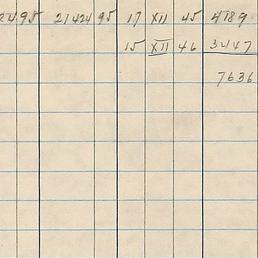 21424 95 17 XII 45 4189
15 XII 46 3447
7636